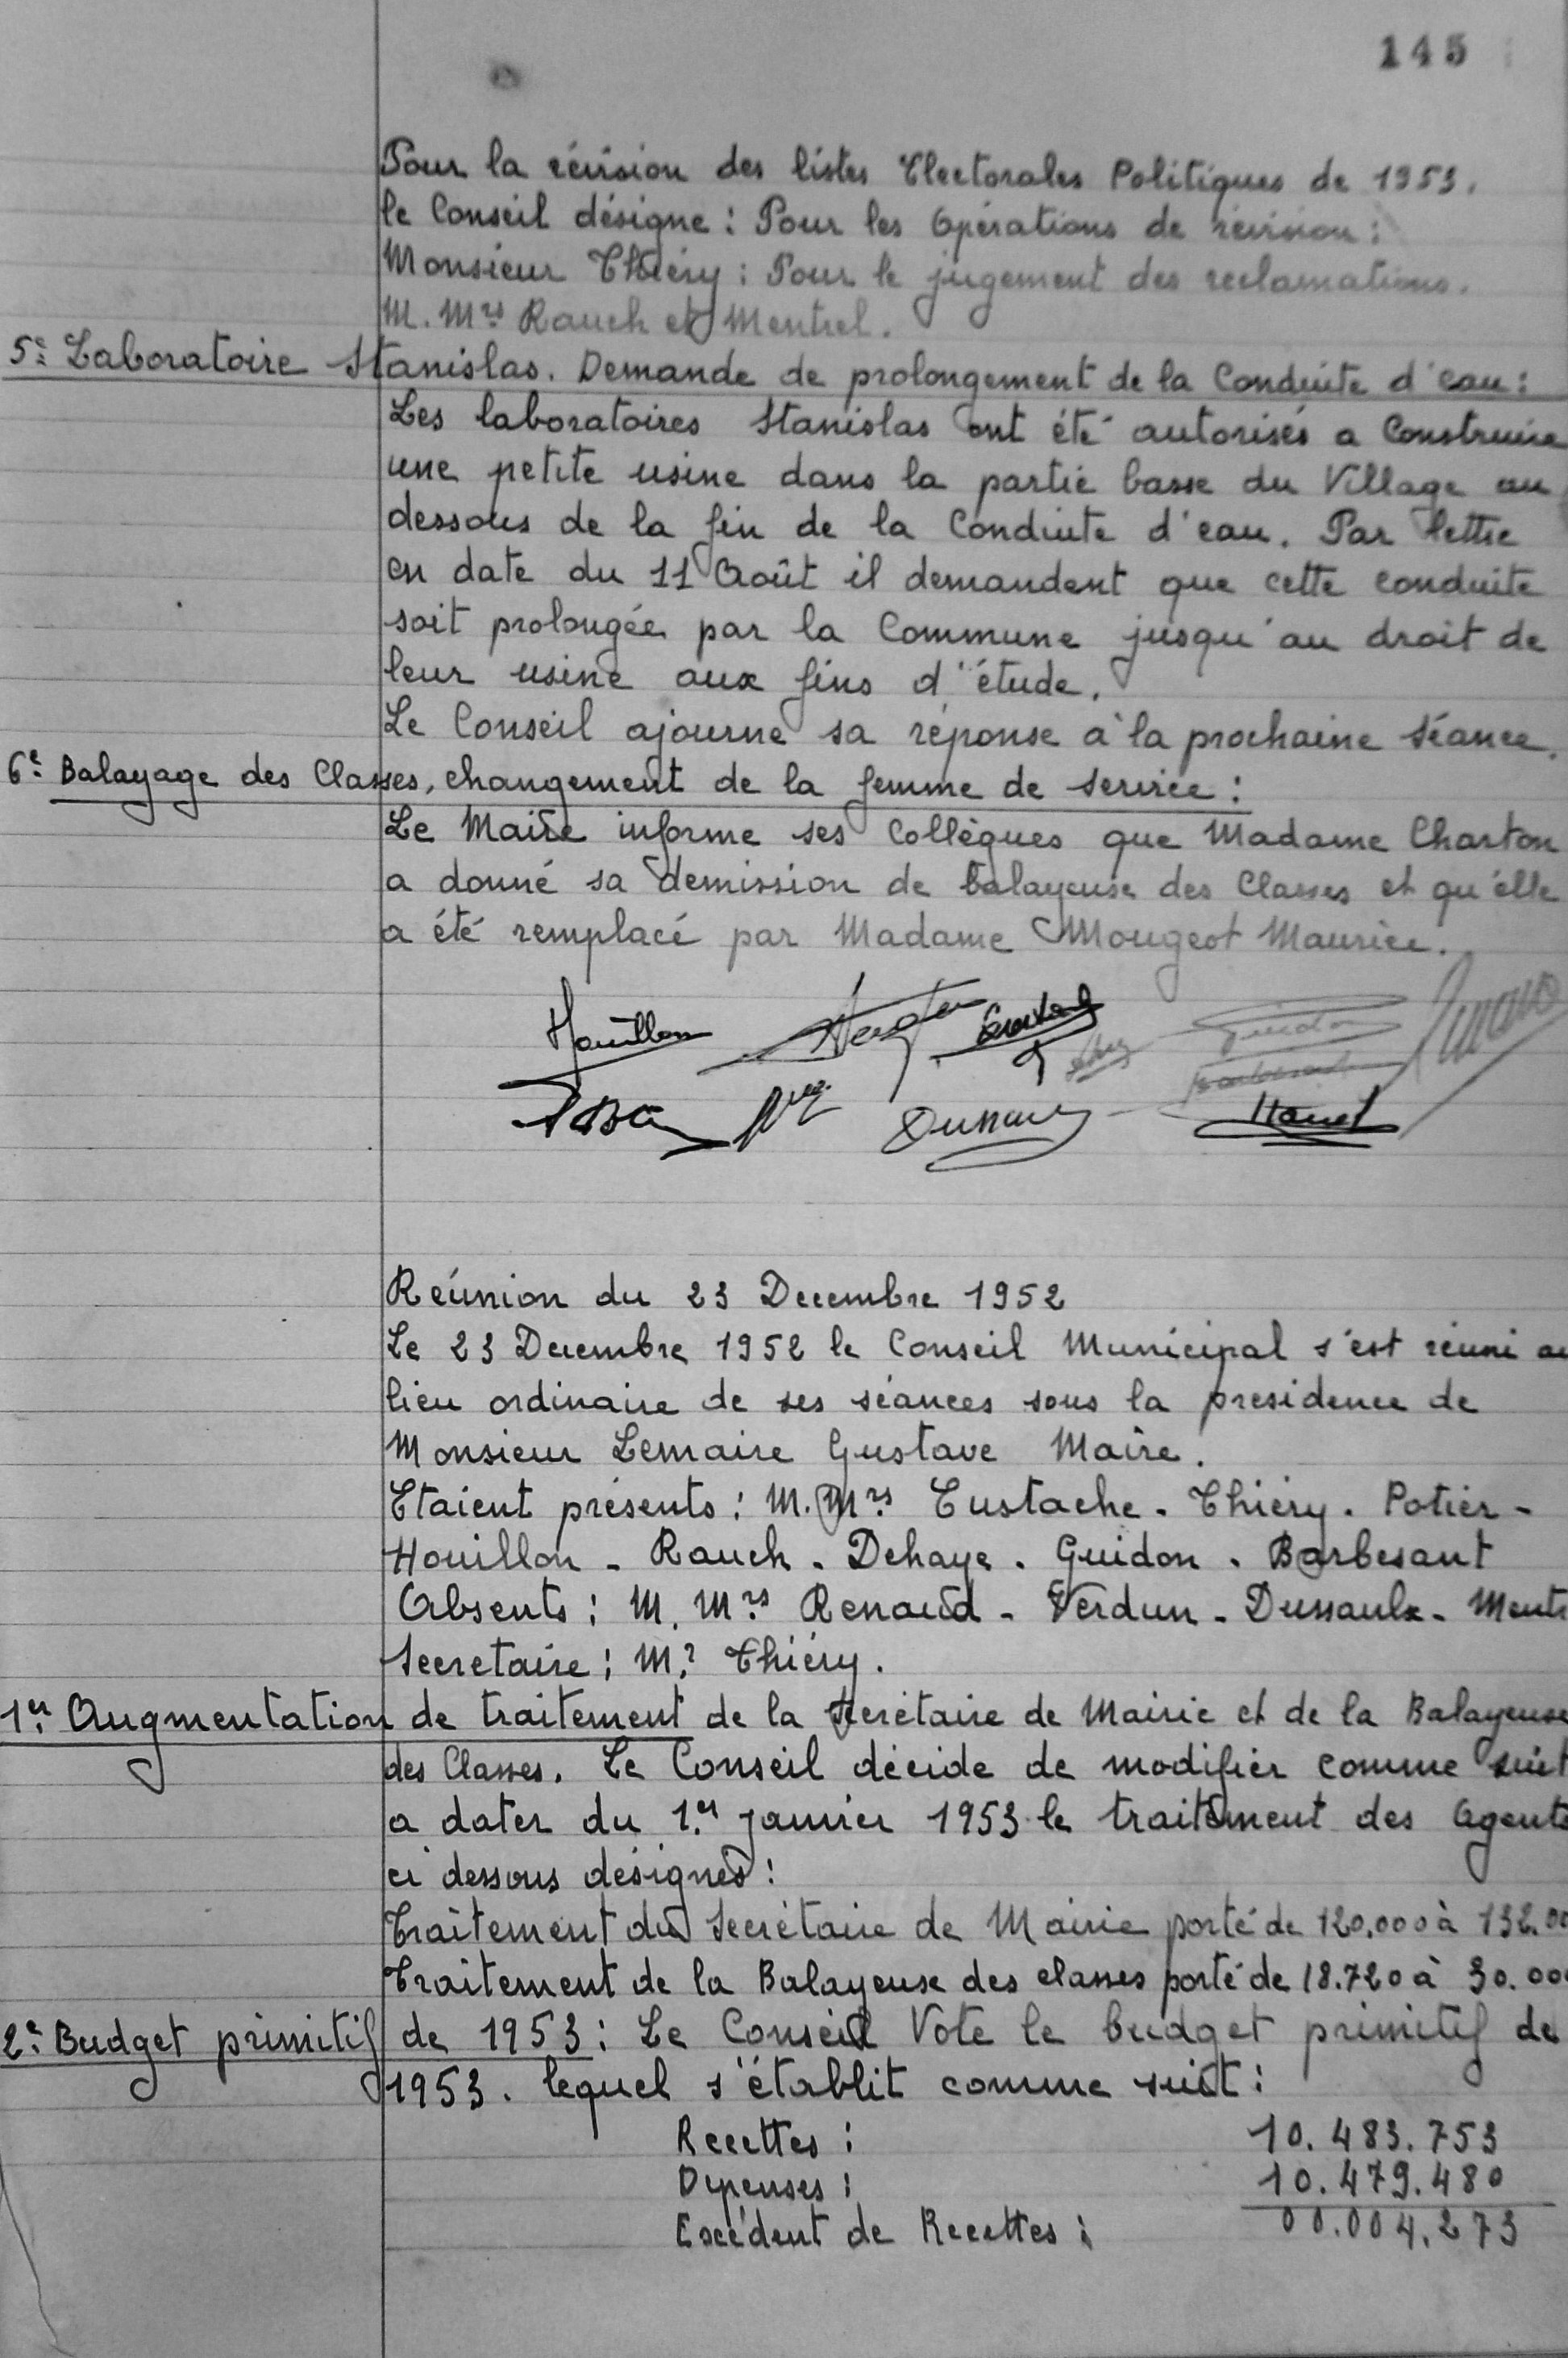 145
Pour la révision des listes Electorales Politiques de 1953.
le Conseil désigne : Pour les Opérations de révision :
Monsieur Thiéry : Pour le jugement des reclamations.
M. Mrs Rauch et Mentrel.
5e: Laboratoire Stanislas. Demande de prolongement de la Conduite d'eau :
Les laboratoires Stanislas ont été autorisés a Construire
une petite usine dans la partie basse du Village au
dessous de la fin de la Conduite d'eau. Par lettre
en date du 11 Août il demandent que cette conduite
soit prolongée par la Commune jusqu'au droit de
leur usine aux fins d'étude.
Le Conseil ajourne sa réponse à la prochaine séance.
6e: Balayage des Classes, changement de la femme de service :
Le Maire informe ses Collègues que Madame Charton
a donné sa demission de balayeuse des Classes et qu'elle
a été remplacé par Madame Mougeot Maurice.
Houillon
Guidon
Barbesant
Dussaulx
Réunion du 23 Decembre 1952
Le 23 Decembre 1952 le Conseil Municipal s'est réuni au
lieu ordinaire de ses séances sous la presidence de
Monsieur Lemaire Gustave Maire.
Etaient présents : M. Mrs Eustache - Thiéry. Potier -
Houillon - Rauch - Dehaye. Guidon. Barbesant
Absents : M. Mrs Renaud - Verdun - Dussaulx - Mentr
Secretaire : Mr Thiéry.
1er: Augmentation de traitement de la Secrétaire de Mairie et de la Balayeuse
des Classes. Le Conseil décide de modifier comme suit
a dater du 1er janvier 1953 le traitement des Agents
ci dessous désignés :
Traitement du Secrétaire de Mairie porté de 120.000 à 132.00
Traitement de la Balayeuse des classes porté de 18.720 à 30.000
2e: Budget primitif de 1953 : Le Conseil Vote le budget primitif de
1953. lequel s'établit comme suit :
Recettes : 10.483.753
Dépenses : 10.479.480
Excédent de Recettes : 00.004.273